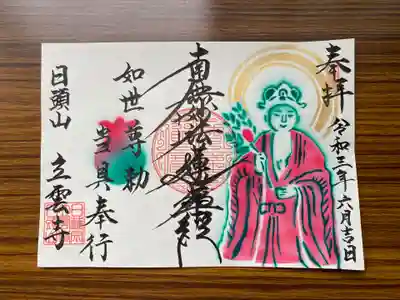 奉拝
令和三年六月吉日
南無妙法蓮華経
如世尊勅
当具奉行
日頭山 立雲寺